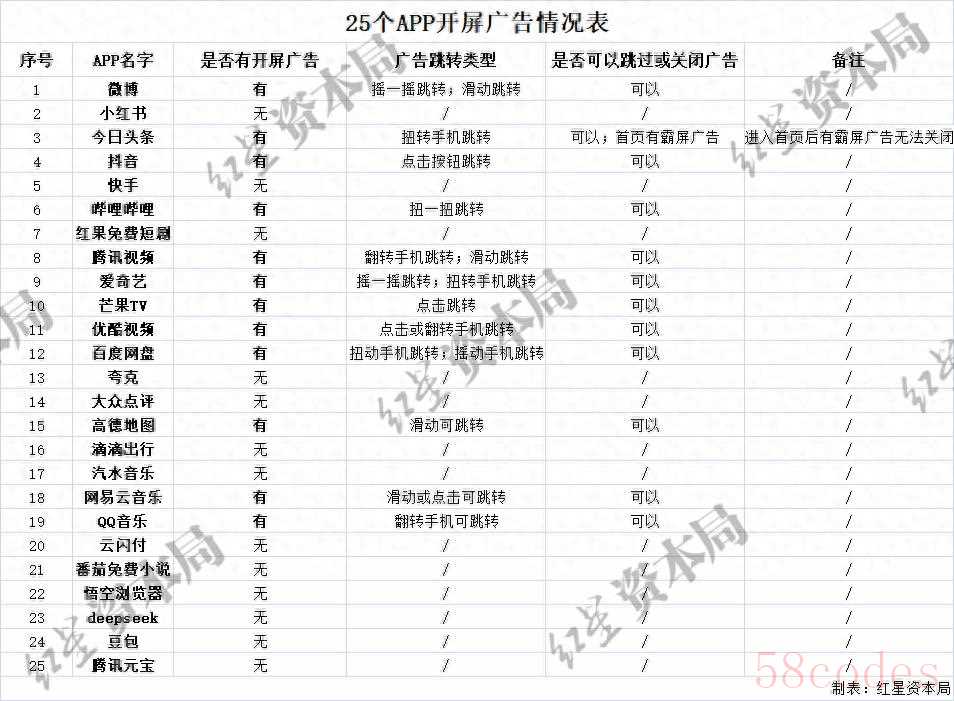 25个APP开屏广告情况表
序号 APP名字 是否有开屏广告 广告跳转类型 是否可以跳过或关闭广告 备注
1 微博 有 摇一摇跳转；滑动跳转 可以 /
2 小红书 无 / / /
3 今日头条 有 扭转手机跳转 可以；首页有霸屏广告 进入首页后有霸屏广告无法关闭
4 抖音 有 点击按钮跳转 可以 /
5 快手 无 / / /
6 哔哩哔哩 有 扭一扭跳转 可以 /
7 红果免费短剧 无 / / /
8 腾讯视频 有 翻转手机跳转；滑动跳转 可以 /
9 爱奇艺 有 摇一摇跳转；扭转手机跳转 可以 /
10 芒果TV 有 点击跳转 可以 /
11 优酷视频 有 点击或翻转手机跳转 可以 /
12 百度网盘 有 扭动手机跳转；摇动手机跳转 可以 /
13 夸克 无 / / /
14 大众点评 无 / / /
15 高德地图 有 滑动可跳转 可以 /
16 滴滴出行 无 / / /
17 汽水音乐 无 / / /
18 网易云音乐 有 滑动或点击可跳转 可以 /
19 QQ音乐 有 翻转手机可跳转 可以 /
20 云闪付 无 / / /
21 番茄免费小说 无 / / /
22 悟空浏览器 无 / / /
23 deepseek 无 / / /
24 豆包 无 / / /
25 腾讯元宝 无 / / /
制表：红星资本局
红星资本局
红星资本局
局
红星资本局
红星
红星资本局
红星资本局
58codes